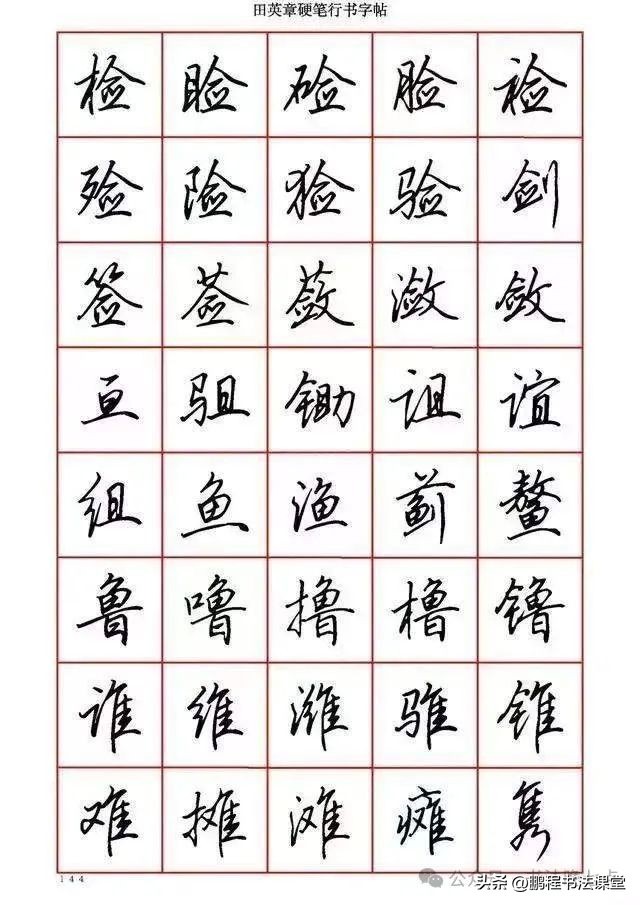 田英章硬笔行书字帖
检 睑 硷 脸 裣
殓 险 猃 验 剑
签 莶 蔹 潋 敛
亘 驵 锄 诅 谊
组 鱼 渔 蓟 鳌
鲁 噜 撸 橹 镥
谁 维 潍 骓 锥
难 摊 滩 瘫 隽
144
头条 @鹏程书法课堂